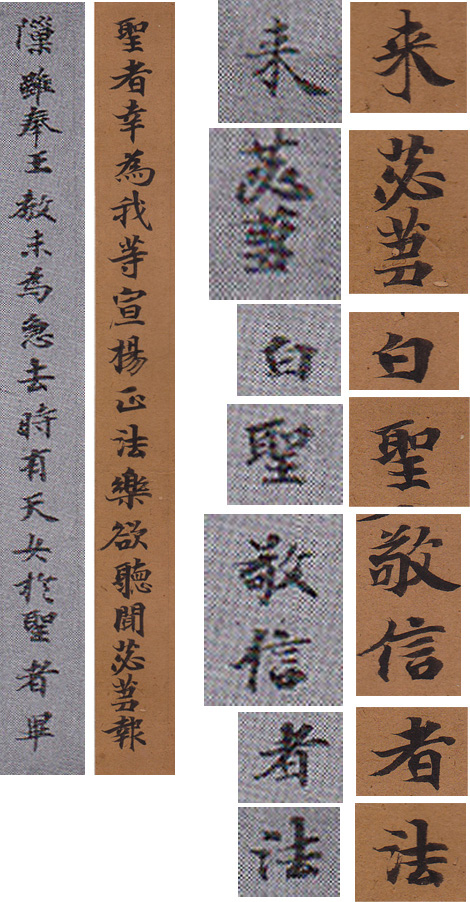 雖奉王教未為急去時有天女於聖者畢
聖者幸為我等宣揚正法樂欲聽聞苾芻報
来
来
苾芻
苾芻
白
白
聖
聖
敬信
敬信
者
者
法
法